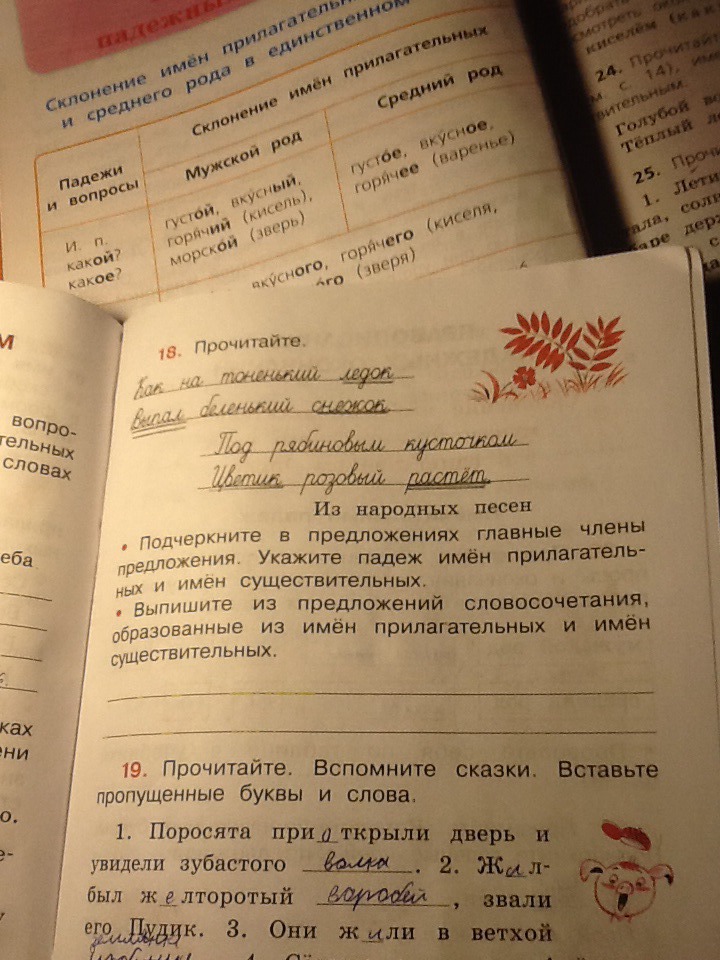 падежны
Склонение имён прилагательн
и среднего рода в единственном
Склонение имён прилагательных
Падежи
и вопросы
Мужской род
Средний род
И. п.
какой?
какое?
густой, вкусный,
горячий (кисель),
морской (зверь)
густое, вкусное,
горячее (варенье)
вкусного, горячего (киселя,
ого (зверя)
добрать
смотреть
киселём (как
24. Прочитай
м. с. 14), им
вительным.
Голубой во
Тёплый ле
25. Прочи
1. Лети
ала, солн
баре держ
м
вопро-
тельных
словах
еба
ках
ени
о.
е-
у
18. Прочитайте.
Как на тоненький ледок
Выпал беленький снежок
Под рябиновым кусточком
Цветик розовый растёт.
Из народных песен
• Подчеркните в предложениях главные члены
предложения. Укажите падеж имён прилагатель-
ных и имён существительных.
• Выпишите из предложений словосочетания,
образованные из имён прилагательных и имён
существительных.
19. Прочитайте. Вспомните сказки. Вставьте
пропущенные буквы и слова.
1. Поросята приоткрыли дверь и
увидели зубастого волка. 2. Жил-
был желторотый воробей, звали
его Пудик. 3. Они жили в ветхой
землянке